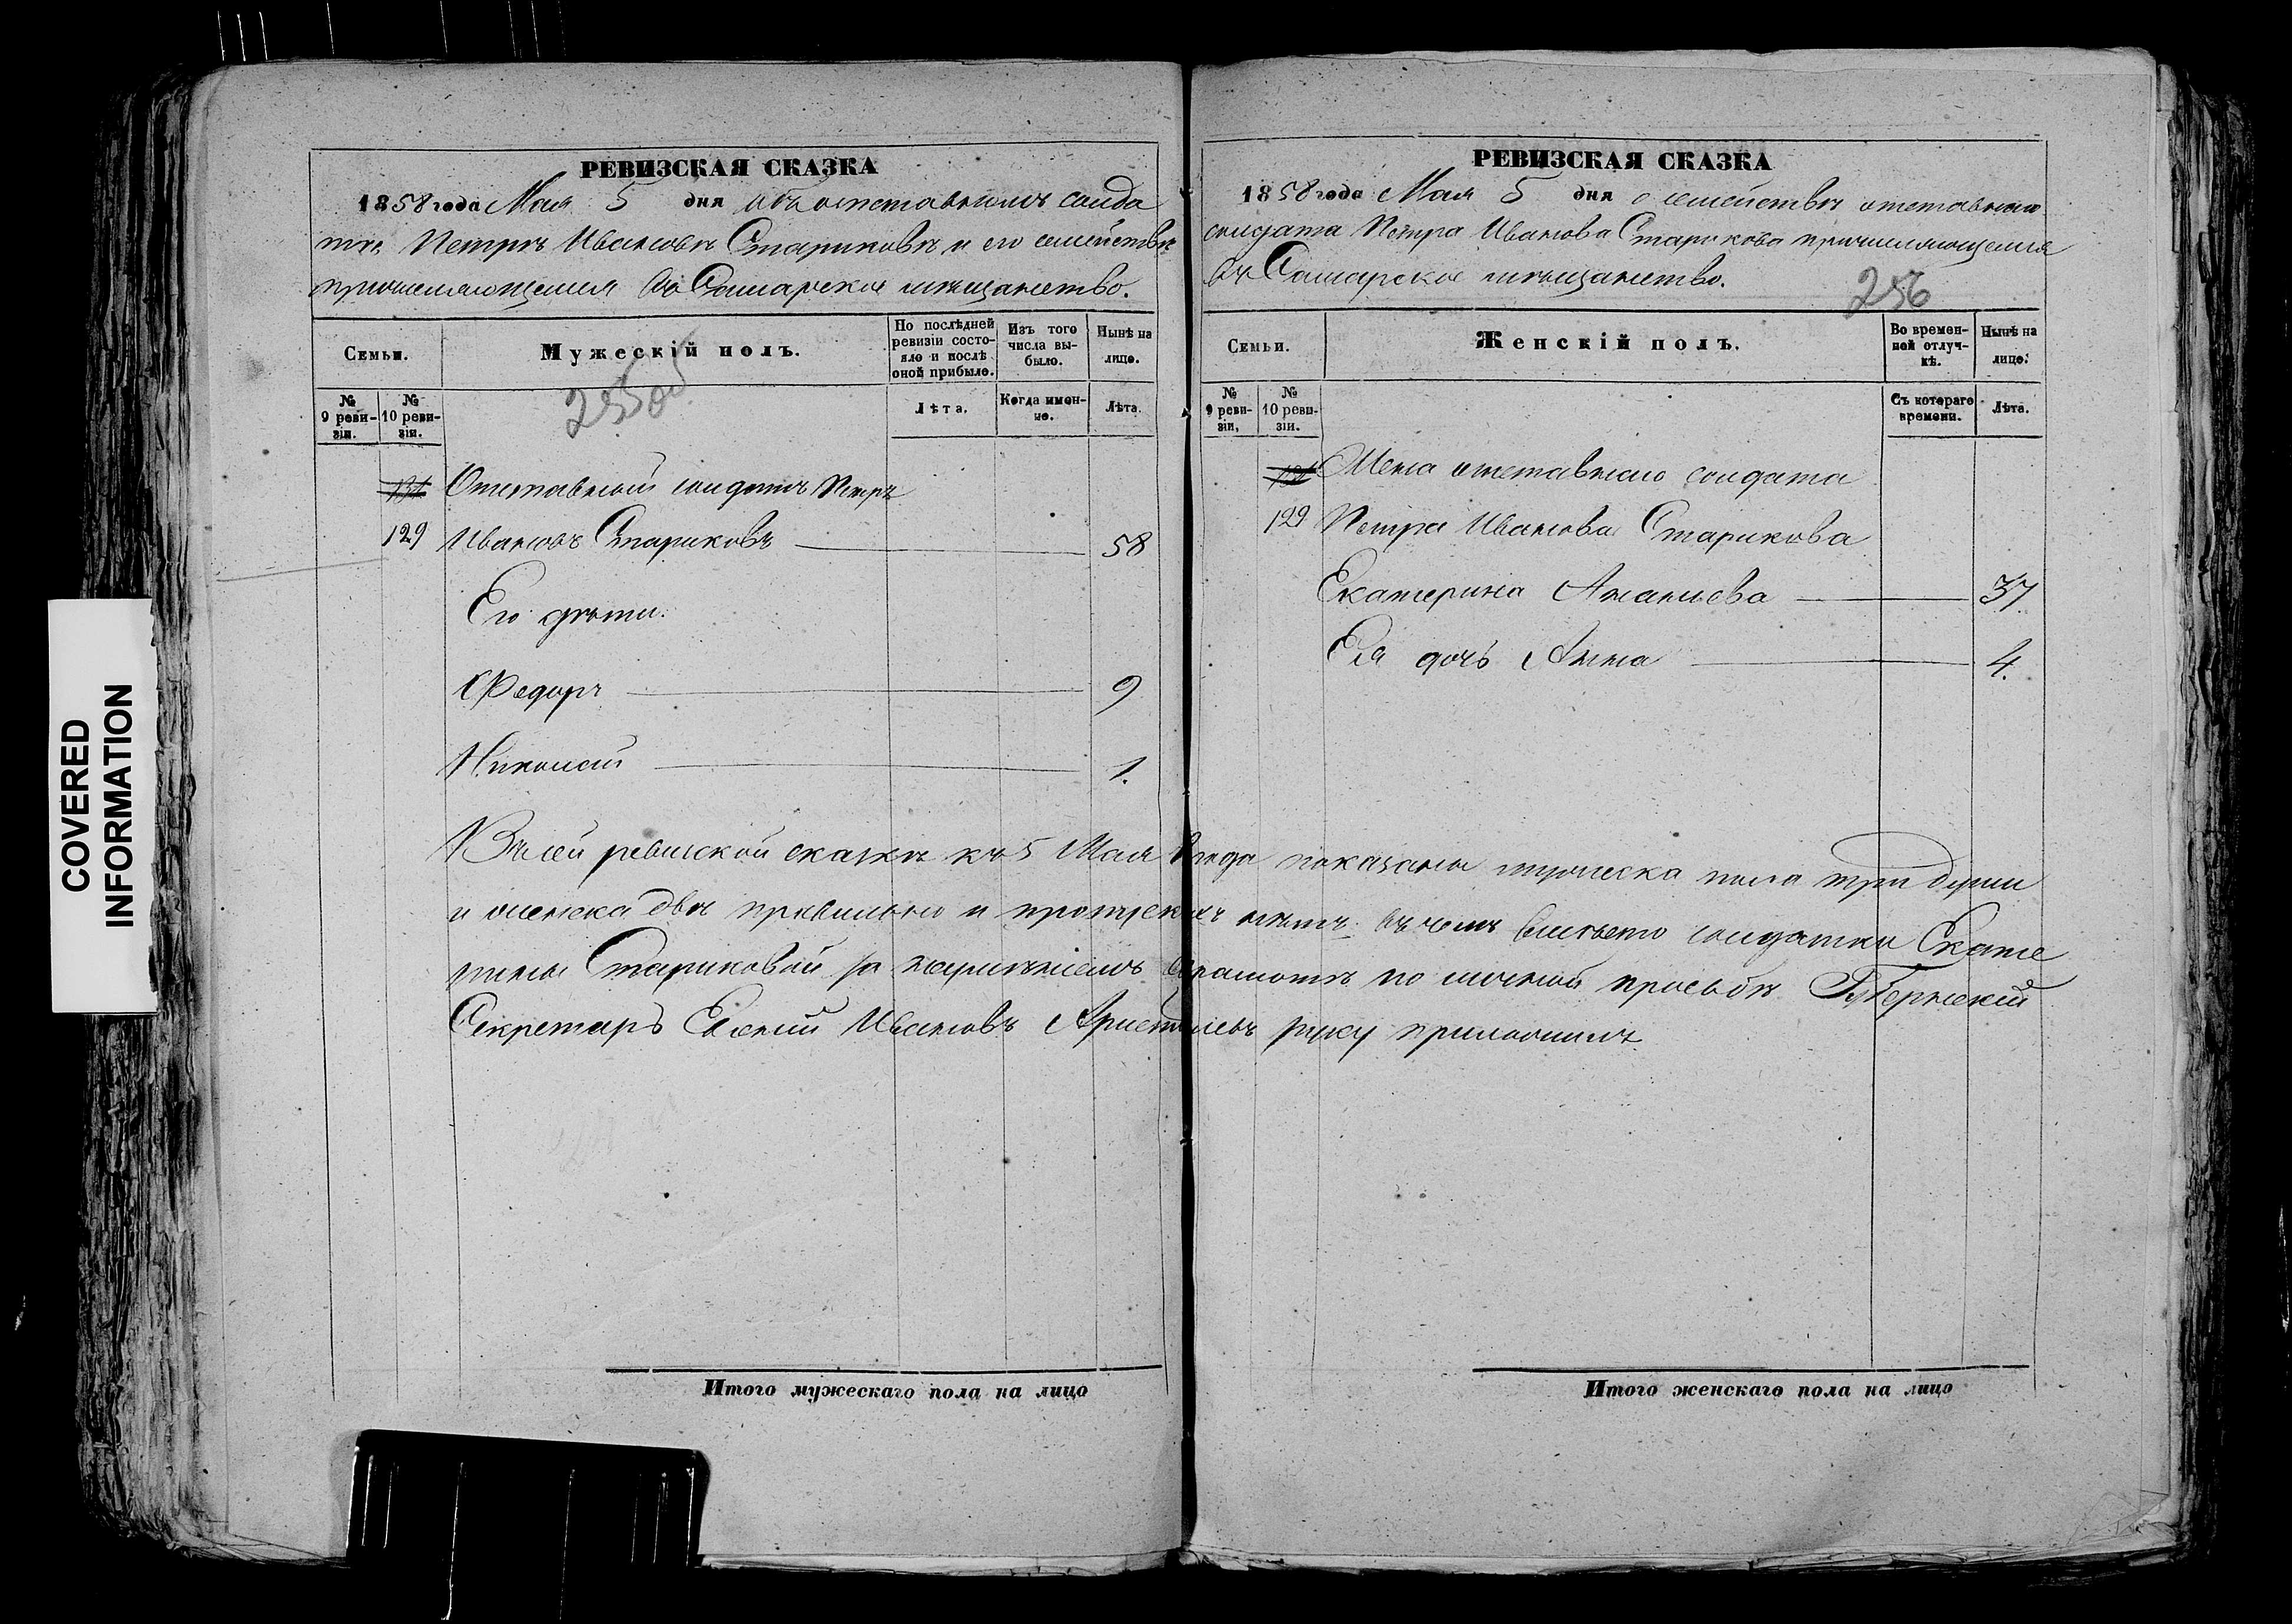 РЕВИЗСКАЯ СКАЗКА
1858 года Мая 5 дня объ отставномъ солда
тѣ Петрѣ Ивановѣ Стариковѣ и его семействѣ
причисляющемся въ Самарское мѣщанство.
Семьи.
Мужескій полъ.
По послѣдней ревизіи состояло и послѣ оной прибыло.
Изъ того числа выбыло.
Нынѣ на лицо.
№ 9 ревизіи.
№ 10 ревизіи.
255 об
Лѣта.
Когда именно.
Лѣта.
131 Отставной солдатъ Петръ
129 Ивановъ Стариковъ 58
Его дѣти:
Федоръ 9
Николай 1.
РЕВИЗСКАЯ СКАЗКА
1858 года Мая 5 дня о семействѣ отставнаго
солдата Петра Иванова Старикова причисляющемся
въ Самарское мѣщанство.
256
Семьи.
Женскій полъ.
Во временной отлучкѣ.
Нынѣ на лицо.
№ 9 ревизіи.
№ 10 ревизіи.
Съ котораго времени.
Лѣта.
131 Жена отставнаго солдата
129 Петра Иванова Старикова
Екатерина Ананьева 37
Ея дочь Анна 4.
Въ сей ревизской сказкѣ къ 5 Мая года показаны мужеска пола три души
и женска двѣ правильно и пропускныхъ нѣтъ въ чемъ вмѣсто солдатки Екате
рины Стариковой за неумѣніемъ грамотѣ по личной просьбѣ Губернскій
Секретарь Ивановъ руку приложилъ
Итого мужескаго пола на лицо
Итого женскаго пола на лицо
COVERED
INFORMATION